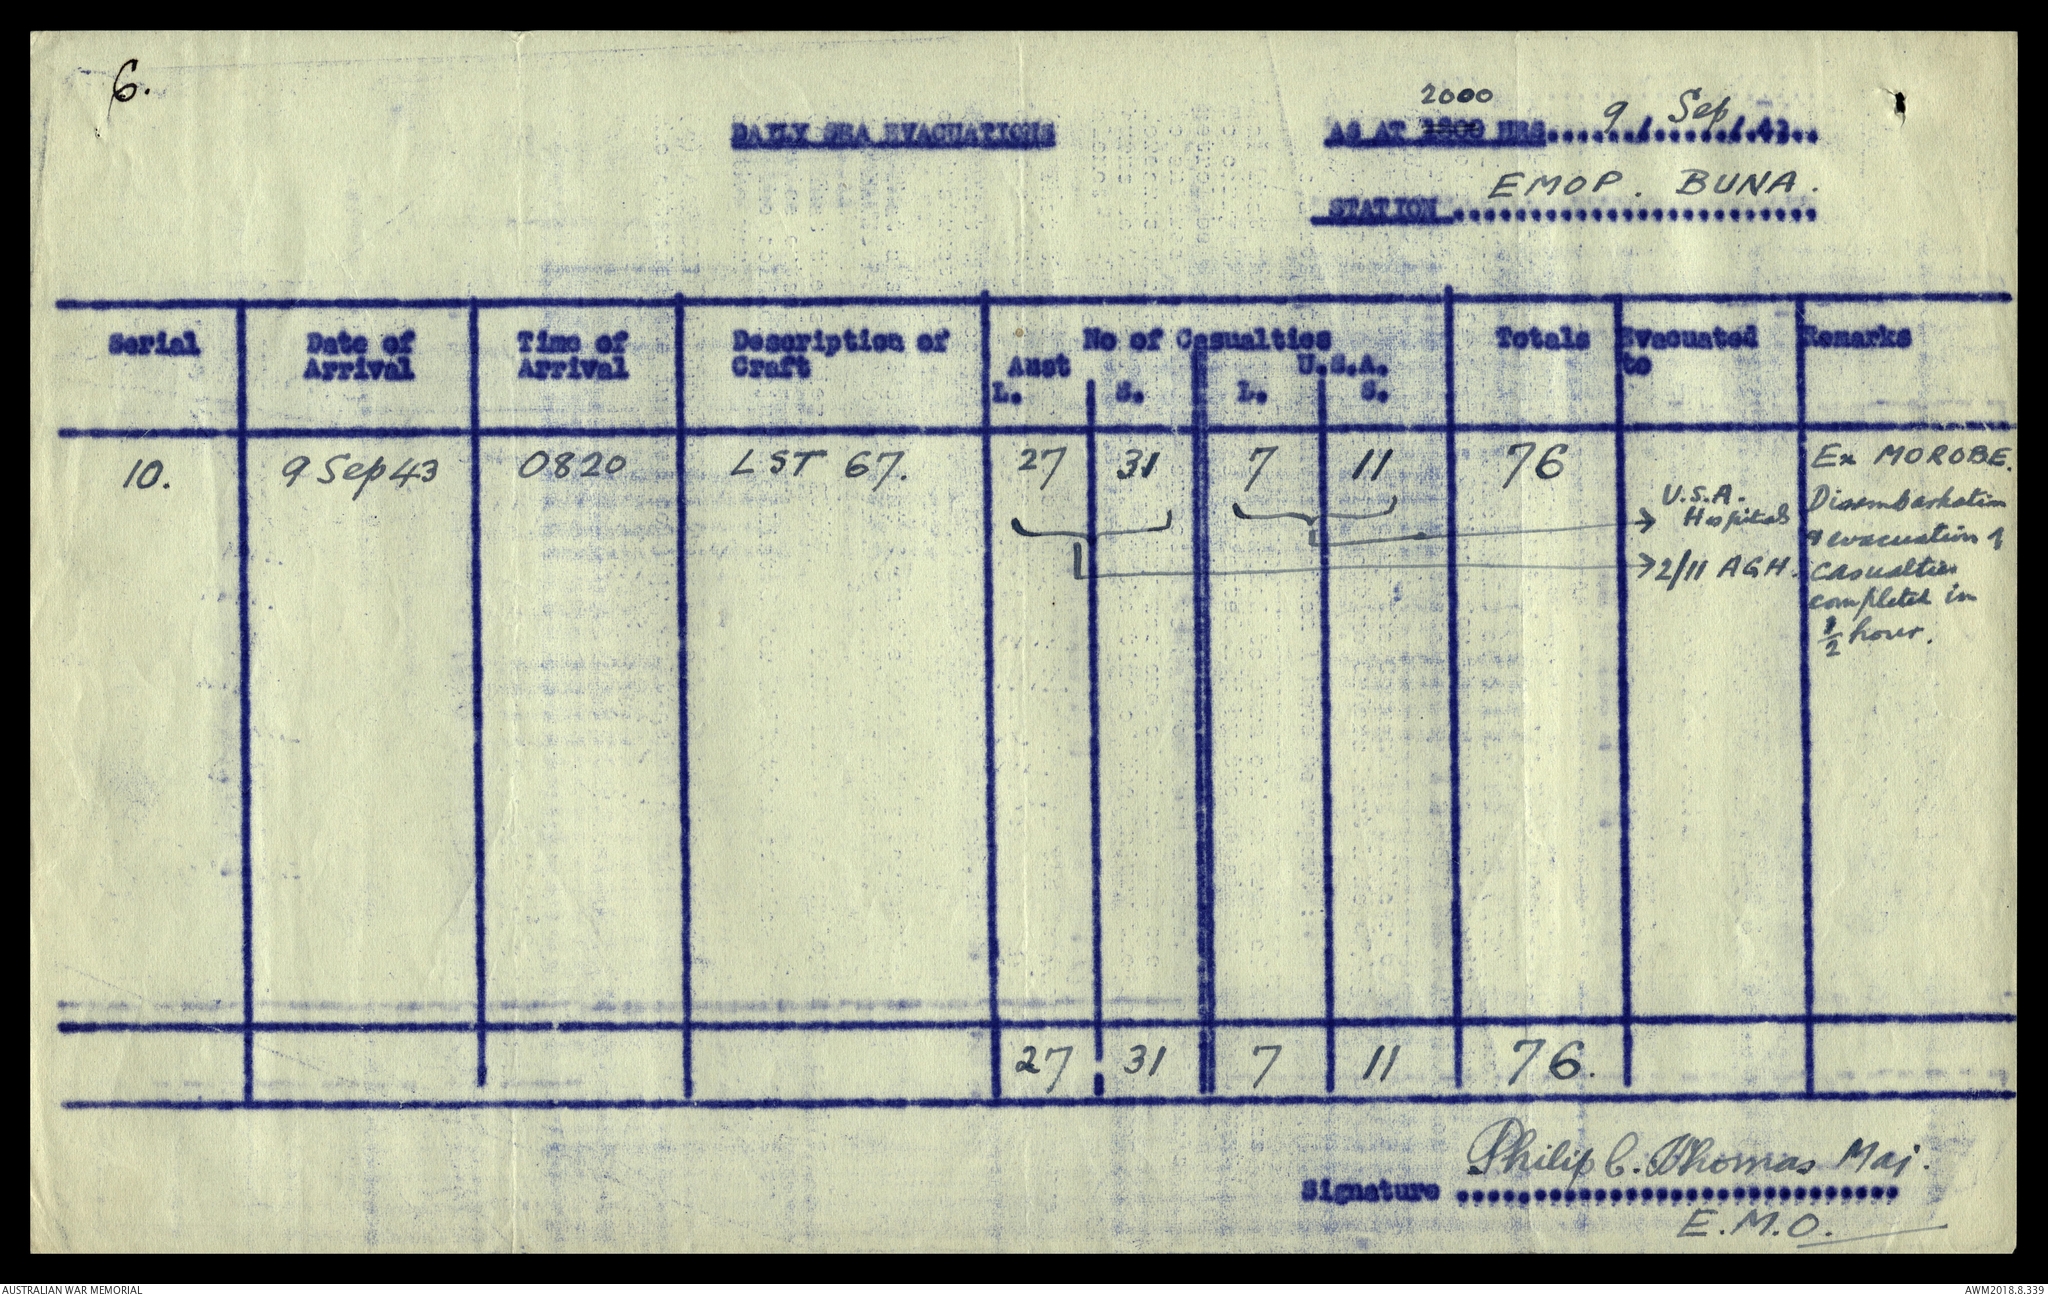 6.
DAILY SEA EVACUATIONS
2000
AS AT 1800 HRS......9./...Sep../.43..
STATION EMOP. BUNA.
Serial Date of Arrival Time of Arrival Description of Craft No of Casualties Totals Evacuated to Remarks
Aust U.S.A.
L. S. L. S.
10. 9 Sep 43 0820 LST 67. 27 31 7 11 76 Ex MOROBE.
U.S.A. Hospitals
2/11 AGH.
Disembarkation
& evacuation of
casualties
completed in
1/2 hour.
27 31 7 11 76.
Philip C. Thomas Maj.
Signature
E.M.O.
AUSTRALIAN WAR MEMORIAL
AWM2018.8.339